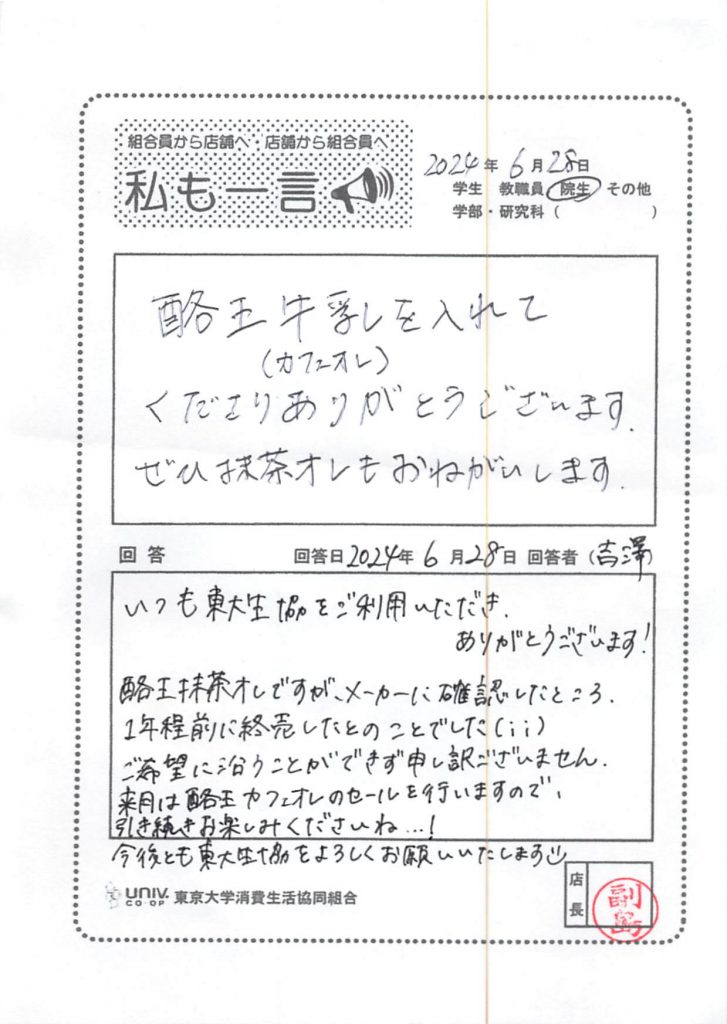 組合員から店舗へ・店舗から組合員へ
私も一言
2024年6月28日
学生 教職員 院生 その他
学部・研究科( )
酪王牛乳を入れて
(カフェオレ)
くださりありがとうございます.
ぜひ抹茶オレもおねがいします.
回答 回答日2024年6月28日 回答者(吉澤)
いつも東大生協をご利用いただき、
ありがとうございます!
酪王抹茶オレですが、メーカーに確認したところ、
1年程前に終売したとのことでした(ii)
ご希望に沿うことができず申し訳ございません.
来月は酪王カフェオレのセールを行いますので、
引き続きお楽しみくださいね…!
今後とも東大生協をよろしくお願いいたします
UNIV. CO-OP 東京大学消費生活協同組合
店長
副島